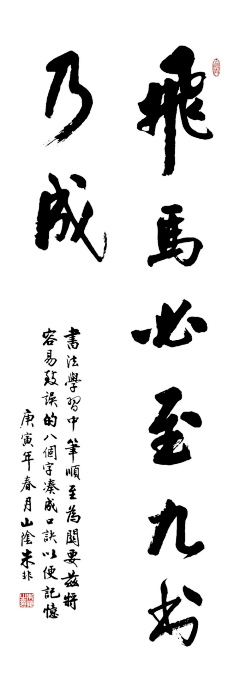 飛馬必至九出
乃成
書法學習中筆順至為關要茲將
容易致誤的八個字湊成口訣以便記憶
庚寅年春月山陰朱非